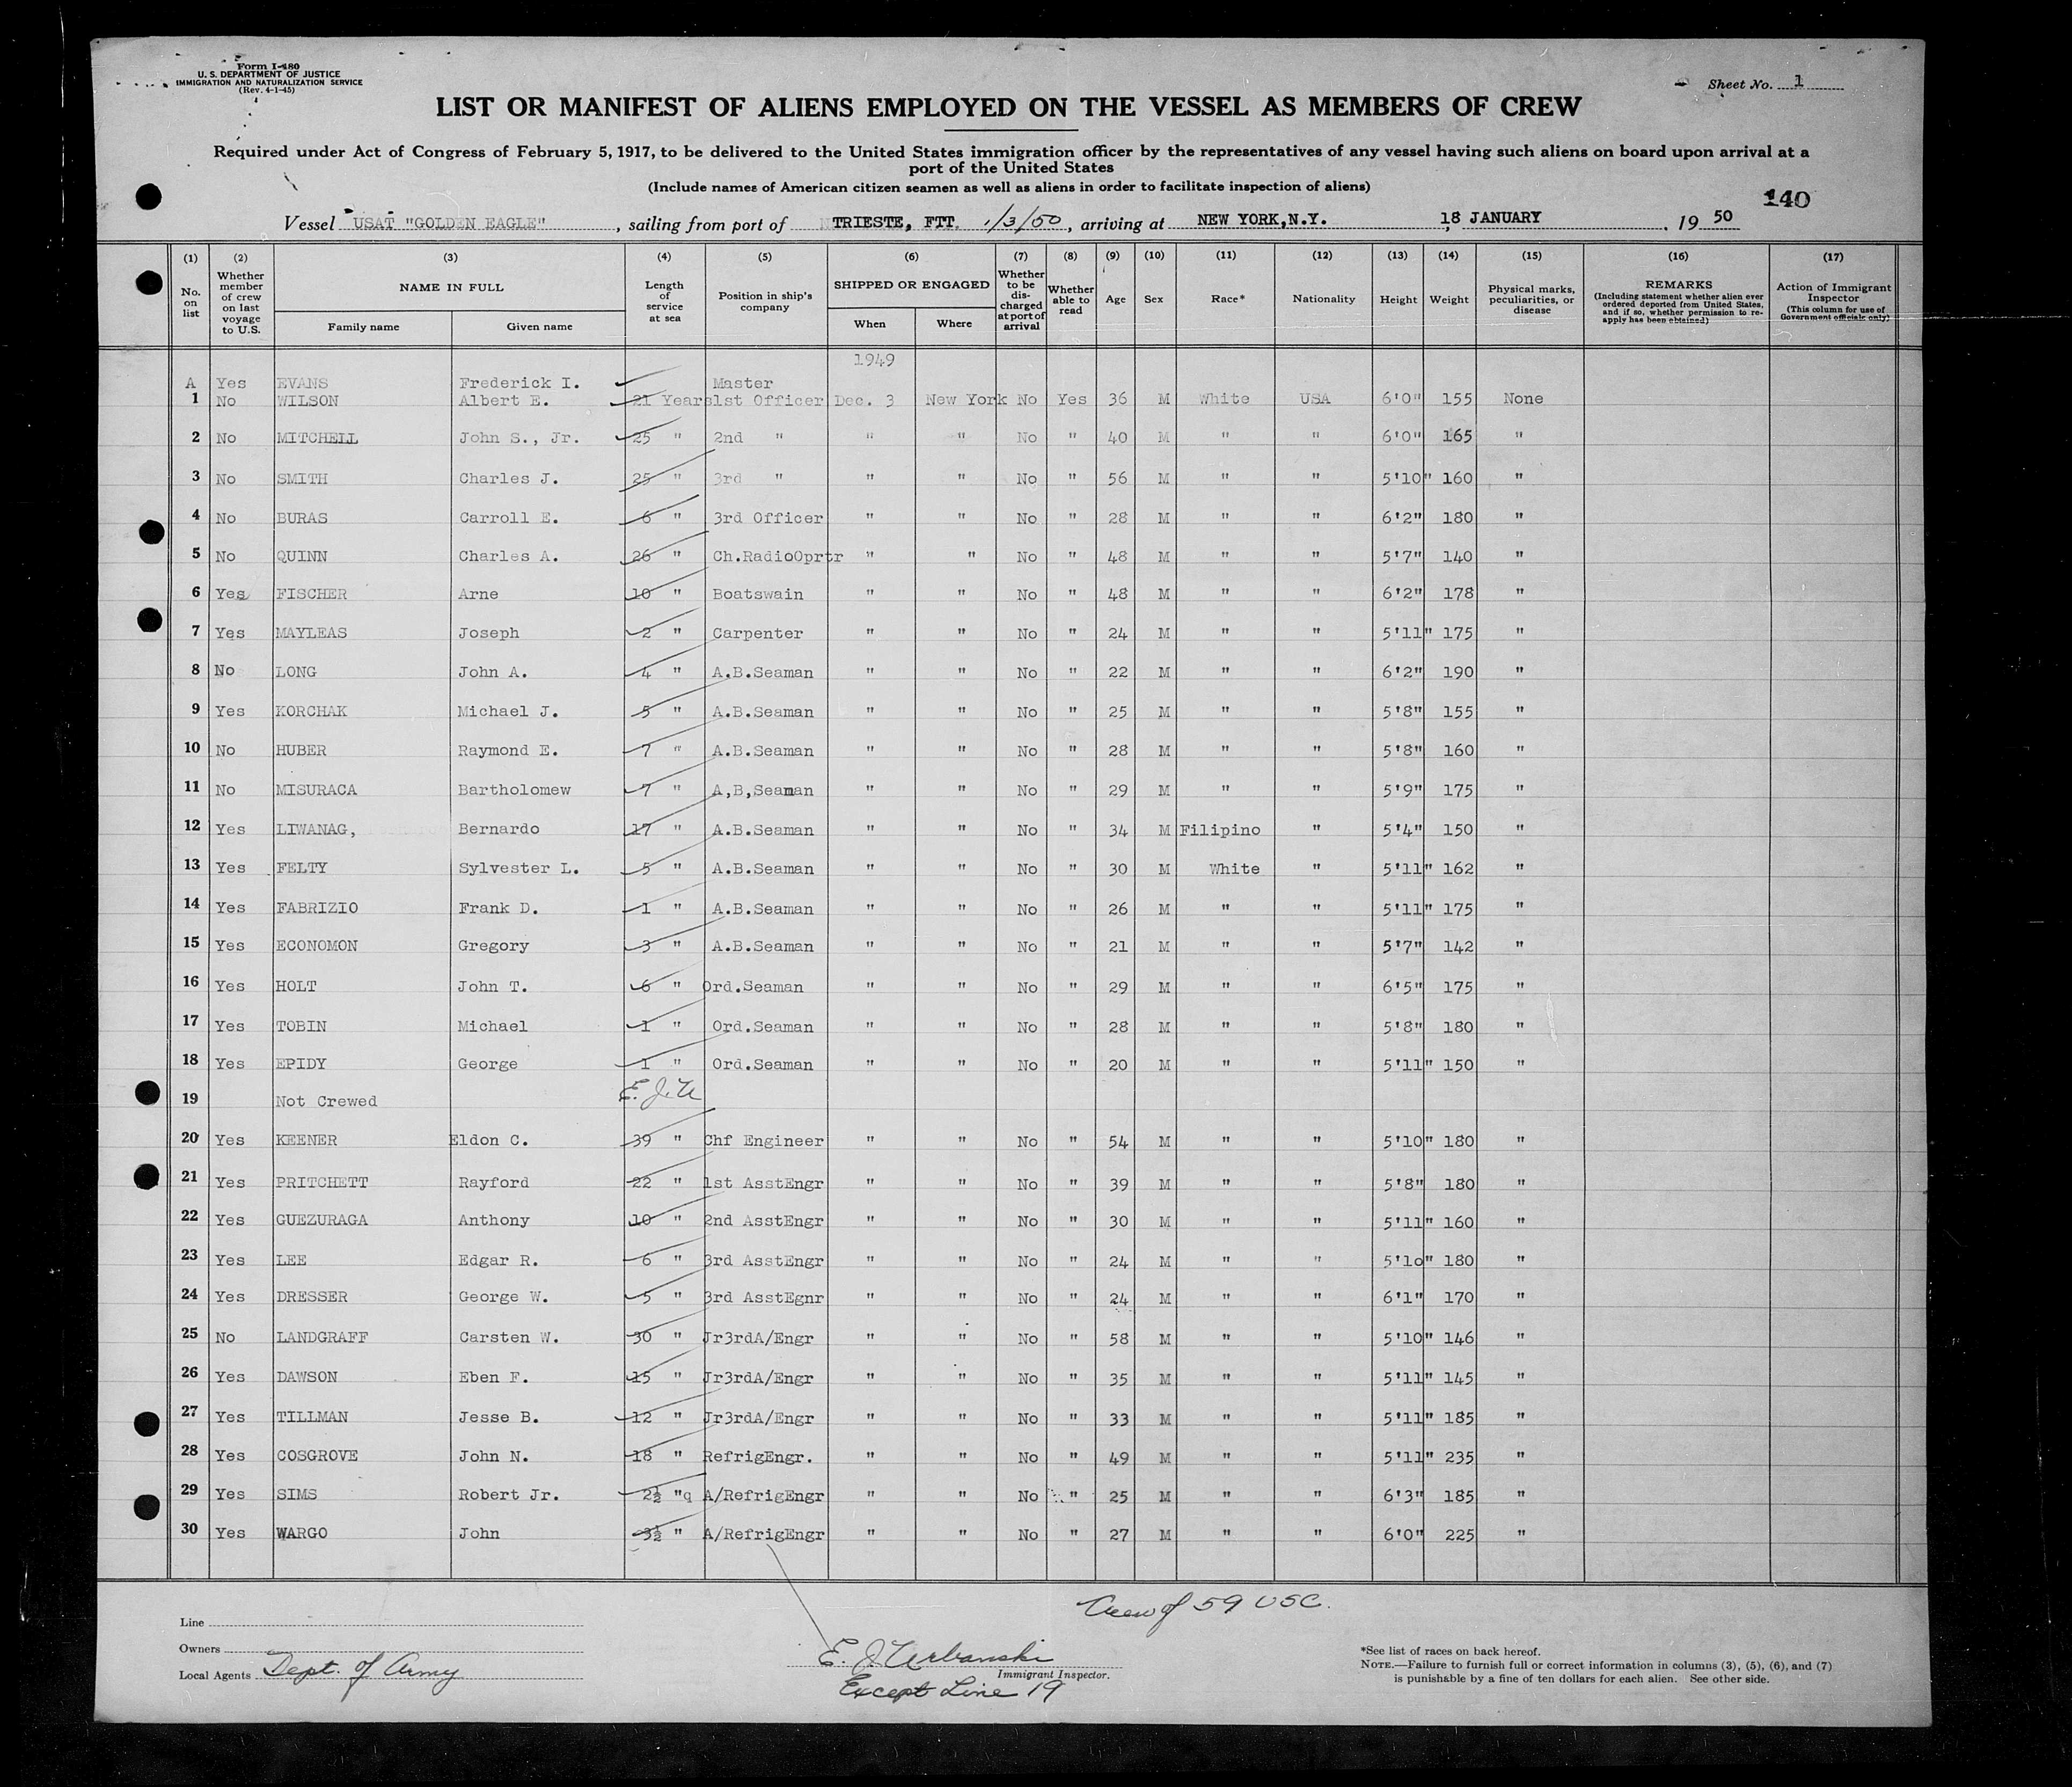 Form I-480
U. S. DEPARTMENT OF JUSTICE
IMMIGRATION AND NATURALIZATION SERVICE
(Rev. 4-1-45)
Sheet No. 1
LIST OR MANIFEST OF ALIENS EMPLOYED ON THE VESSEL AS MEMBERS OF CREW
Required under Act of Congress of February 5, 1917, to be delivered to the United States immigration officer by the representatives of any vessel having such aliens on board upon arrival at a
port of the United States
(Include names of American citizen seamen as well as aliens in order to facilitate inspection of aliens)
140
Vessel USAT "GOLDEN EAGLE", sailing from port of TRIESTE, FTT. 1/3/50, arriving at NEW YORK,N.Y. 18 JANUARY, 19 50
(1) No. on list (2) Whether member of crew on last voyage to U.S. (3) NAME IN FULL Family name Given name (4) Length of service at sea (5) Position in ship's company (6) SHIPPED OR ENGAGED When Where (7) Whether to be discharged at port of arrival (8) Whether able to read (9) Age (10) Sex (11) Race* (12) Nationality (13) Height (14) Weight (15) Physical marks, peculiarities, or disease (16) REMARKS (Including statement whether alien ever ordered deported from United States, and if so, whether permission to re-apply has been obtained) (17) Action of Immigrant Inspector (This column for use of Government officials only)
1949
A Yes EVANS Frederick I. Master
1 No WILSON Albert E. 21 Years 1st Officer Dec. 3 New York No Yes 36 M White USA 6'0" 155 None
2 No MITCHELL John S., Jr. 25 " 2nd " " " No " 40 M " " 6'0" 165 "
3 No SMITH Charles J. 25 " 3rd " " " No " 56 M " " 5'10" 160 "
4 No BURAS Carroll E. 6 " 3rd Officer " " No " 28 M " " 6'2" 180 "
5 No QUINN Charles A. 26 " Ch.RadioOprtr " " No " 48 M " " 5'7" 140 "
6 Yes FISCHER Arne 10 " Boatswain " " No " 48 M " " 6'2" 178 "
7 Yes MAYLEAS Joseph 2 " Carpenter " " No " 24 M " " 5'11" 175 "
8 No LONG John A. 4 " A.B.Seaman " " No " 22 M " " 6'2" 190 "
9 Yes KORCHAK Michael J. 5 " A.B.Seaman " " No " 25 M " " 5'8" 155 "
10 No HUBER Raymond E. 7 " A.B.Seaman " " No " 28 M " " 5'8" 160 "
11 No MISURACA Bartholomew 7 " A,B,Seaman " " No " 29 M " " 5'9" 175 "
12 Yes LIWANAG, Bernardo 17 " A.B.Seaman " " No " 34 M Filipino " 5'4" 150 "
13 Yes FELTY Sylvester L. 5 " A.B.Seaman " " No " 30 M White " 5'11" 162 "
14 Yes FABRIZIO Frank D. 1 " A.B.Seaman " " No " 26 M " " 5'11" 175 "
15 Yes ECONOMON Gregory 3 " A.B.Seaman " " No " 21 M " " 5'7" 142 "
16 Yes HOLT John T. 6 " Ord.Seaman " " No " 29 M " " 6'5" 175 "
17 Yes TOBIN Michael 1 " Ord.Seaman " " No " 28 M " " 5'8" 180 "
18 Yes EPIDY George 1 " Ord.Seaman " " No " 20 M " " 5'11" 150 "
19 Not Crewed E. J. U
20 Yes KEENER Eldon C. 39 " Chf Engineer " " No " 54 M " " 5'10" 180 "
21 Yes PRITCHETT Rayford 22 " 1st AsstEngr " " No " 39 M " " 5'8" 180 "
22 Yes GUEZURAGA Anthony 10 " 2nd AsstEngr " " No " 30 M " " 5'11" 160 "
23 Yes LEE Edgar R. 6 " 3rd AsstEngr " " No " 24 M " " 5'10" 180 "
24 Yes DRESSER George W. 5 " 3rd AsstEgnr " " No " 24 M " " 6'1" 170 "
25 No LANDGRAFF Carsten W. 30 " Jr3rdA/Engr " " No " 58 M " " 5'10" 146 "
26 Yes DAWSON Eben F. 15 " Jr3rdA/Engr " " No " 35 M " " 5'11" 145 "
27 Yes TILLMAN Jesse B. 12 " Jr3rdA/Engr " " No " 33 M " " 5'11" 185 "
28 Yes COSGROVE John N. 18 " RefrigEngr. " " No " 49 M " " 5'11" 235 "
29 Yes SIMS Robert Jr. 2½ "q A/RefrigEngr " " No " 25 M " " 6'3" 185 "
30 Yes WARGO John 3½ " A/RefrigEngr " " No " 27 M " " 6'0" 225 "
Crew of 59 USC.
Line
Owners
Local Agents Dept. of Army
E. J. Urbanski
Immigrant Inspector.
Except Line 19
*See list of races on back hereof.
NOTE.—Failure to furnish full or correct information in columns (3), (5), (6), and (7)
is punishable by a fine of ten dollars for each alien. See other side.